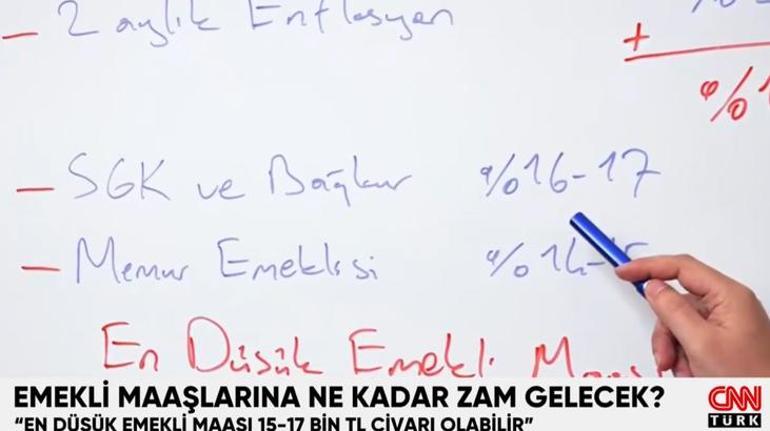 - 2 aylık Enflasyon
+
%1
- SGK ve Bağkur %16-17
- Memur Emeklisi %14-15
En Düşük Emekli Maaşı
EMEKLİ MAAŞLARINA NE KADAR ZAM GELECEK?
"EN DÜŞÜK EMEKLİ MAAŞI 15-17 BİN TL CİVARI OLABİLİR"
CNN
TÜRK